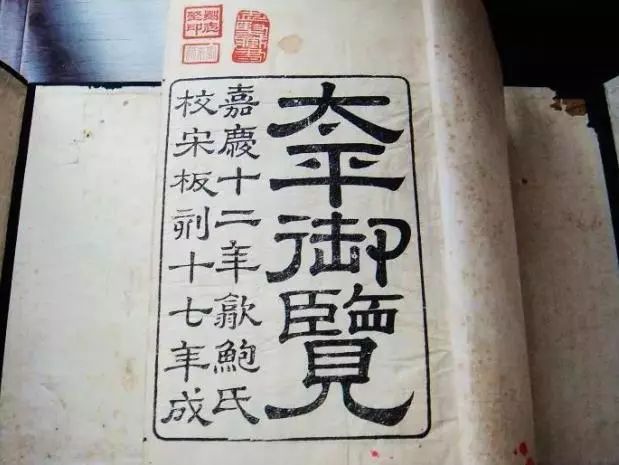 太平御覽
嘉慶十二年歙鮑氏
校宋板刻十七年成